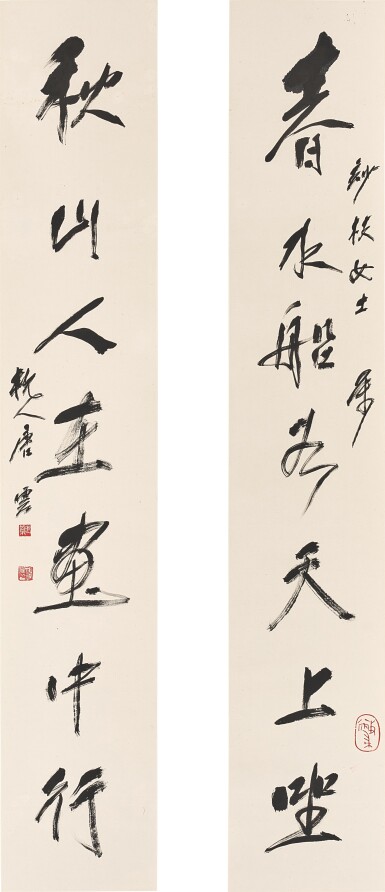 春水船如天上坐
紗枝女士屬
秋山人在畫中行
杭人唐雲